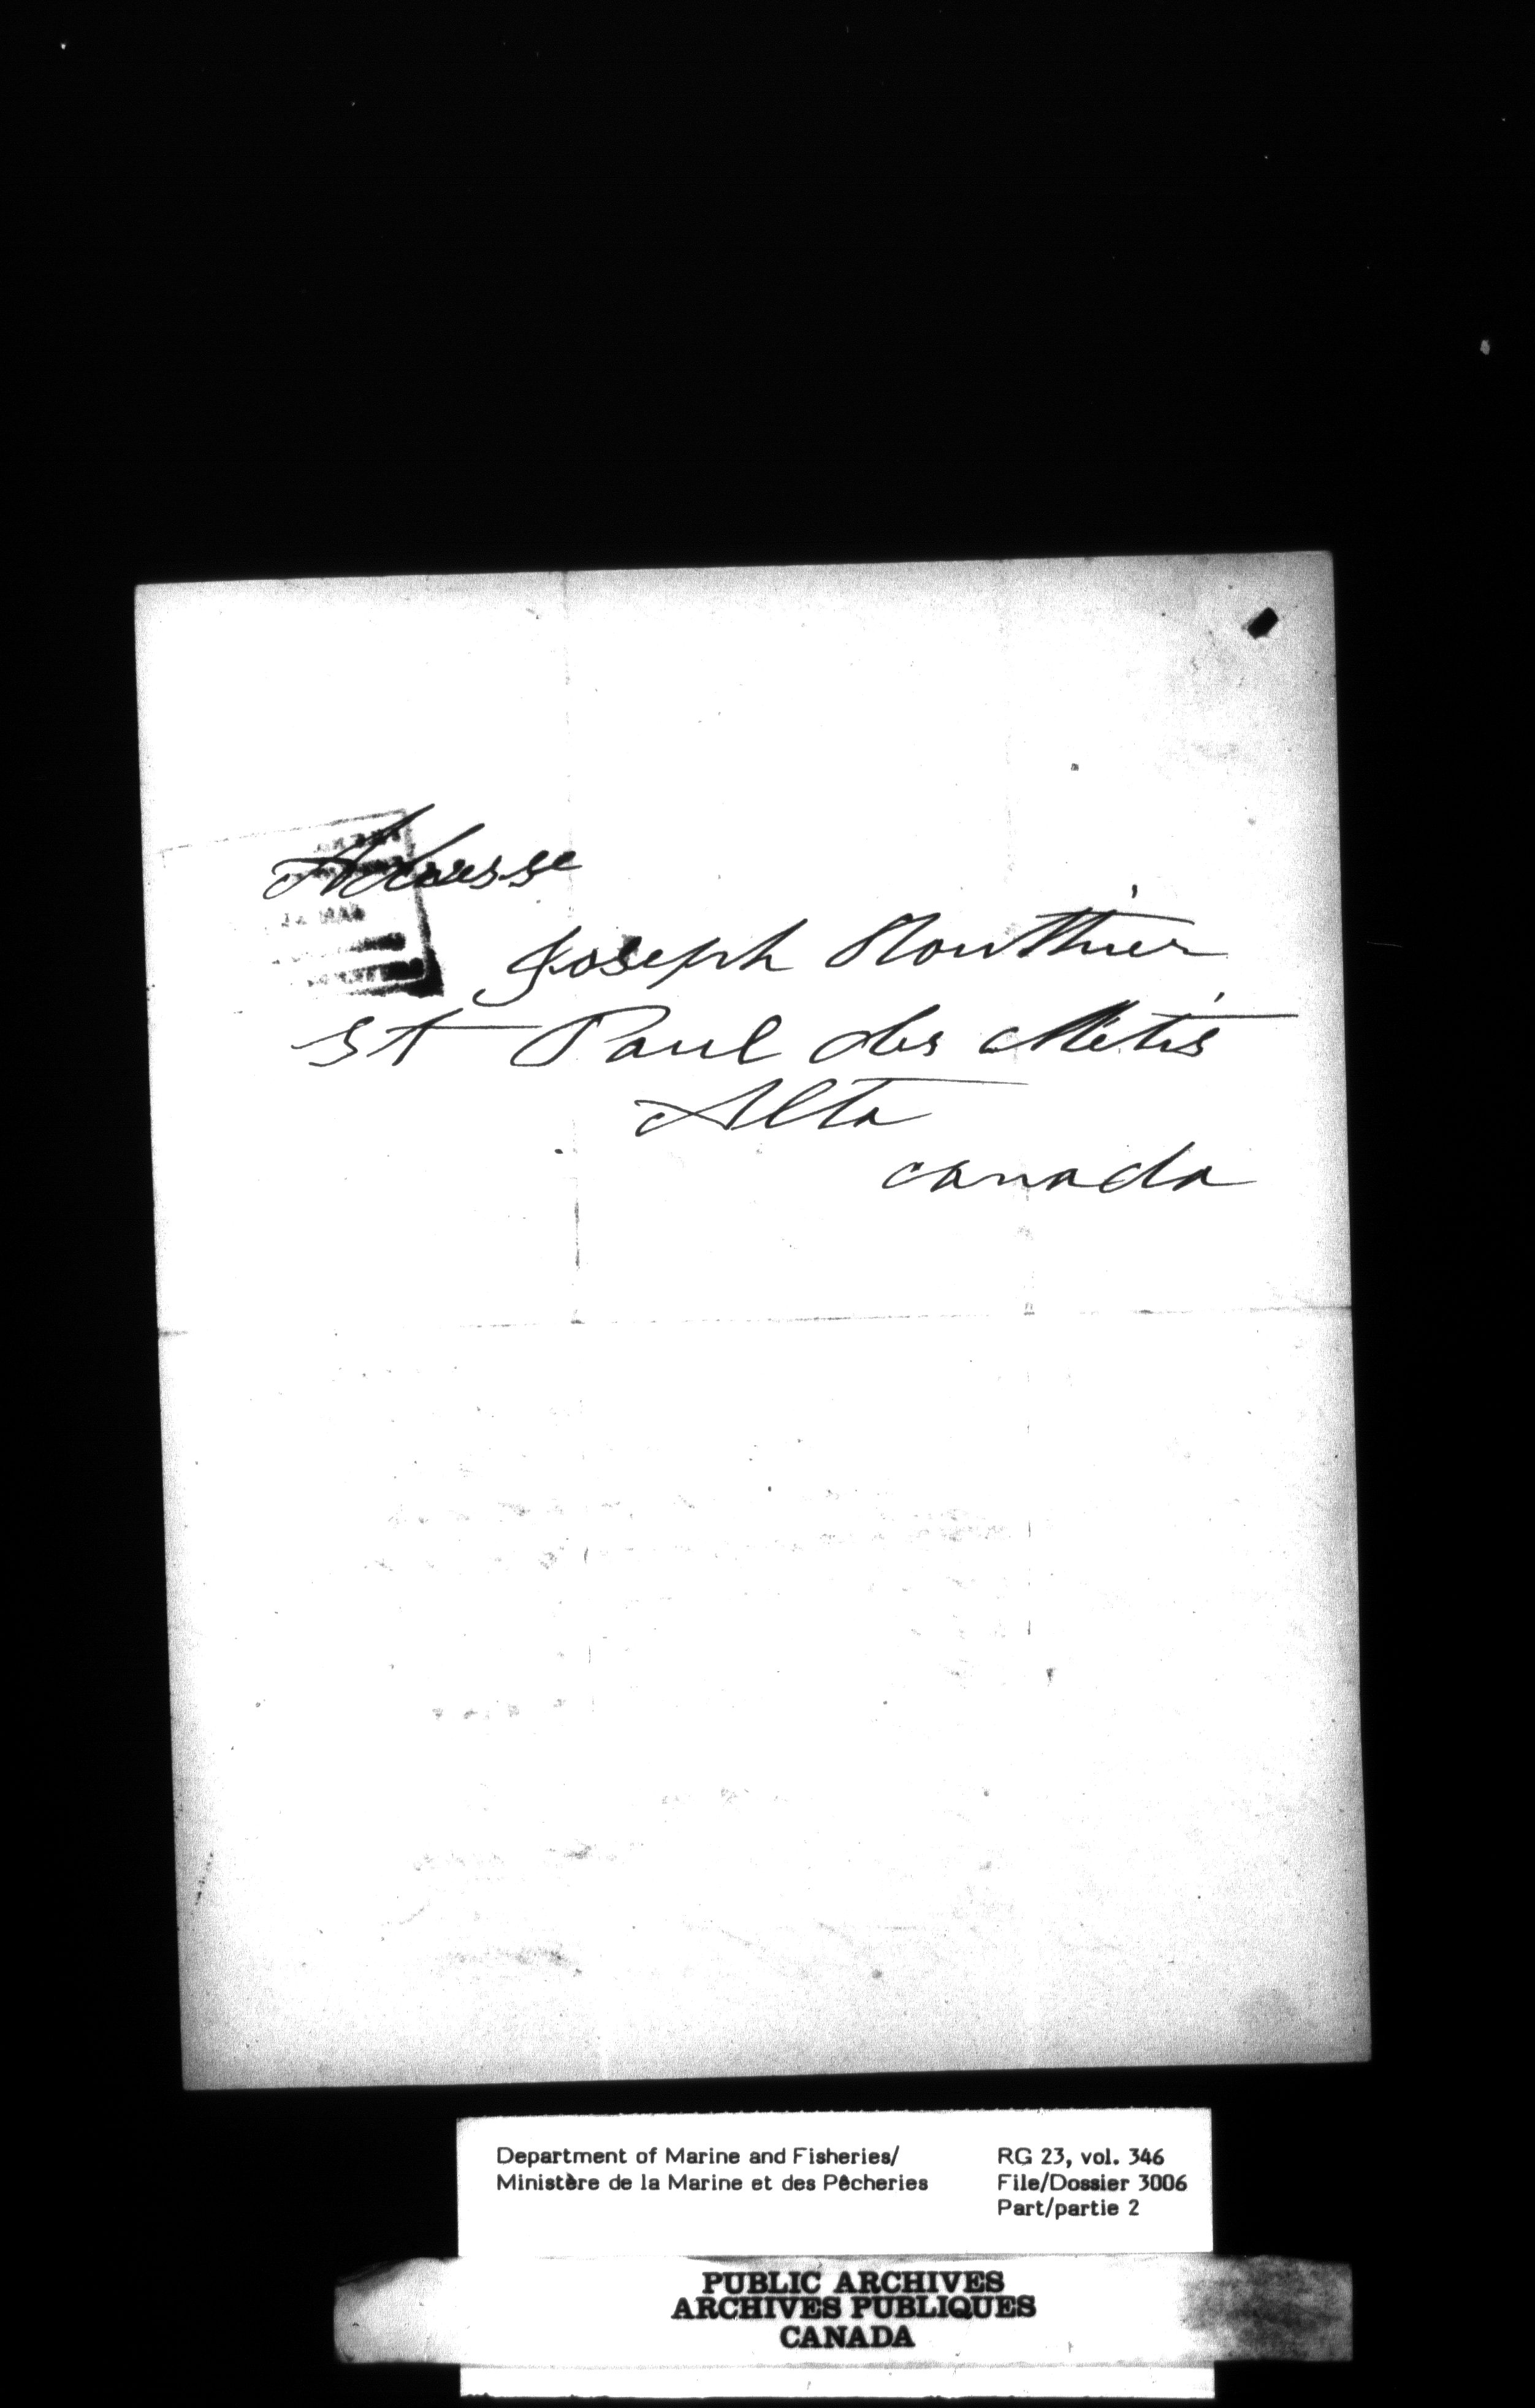 Adresse
Joseph Mouthier
St Paul des Métis
Alta
canada
Department of Marine and Fisheries/
Ministère de la Marine et des Pêcheries
RG 23, vol. 346
File/Dossier 3006
Part/partie 2
PUBLIC ARCHIVES
ARCHIVES PUBLIQUES
CANADA